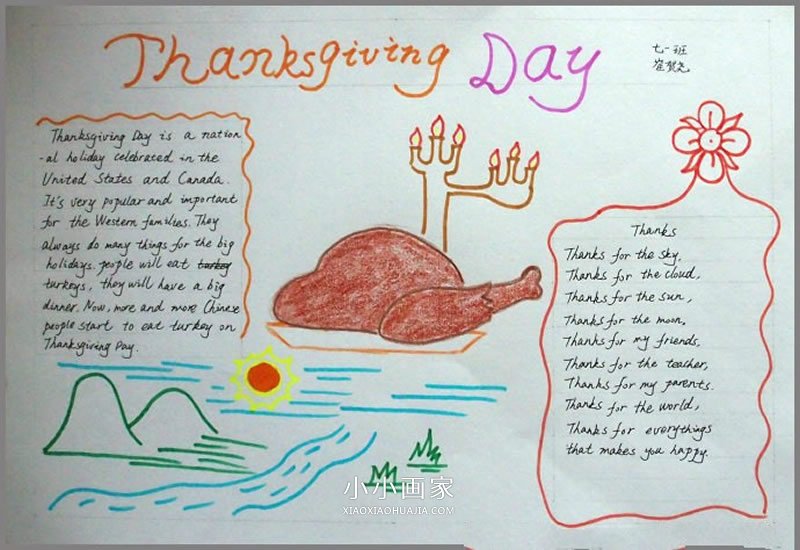 Thanksgiving Day
七一班
崔贺尧
Thanksgiving Day is a nation
-al holiday celebrated in the
United States and Canada.
It's very popular and important
for the Western families. They
always do many things for the big
holidays. people will eat turkey
turkeys, they will have a big
dinner. Now, more and more Chinese
people start to eat turkey on
Thanksgiving Day.
Thanks
Thanks for the sky,
Thanks for the cloud,
Thanks for the sun,
Thanks for the moon,
Thanks for my friends,
Thanks for the teacher,
Thanks for my parents.
Thanks for the world,
Thanks for everythings
that makes you happy.
小小画家
XIAOXIAOHUAJIA.COM